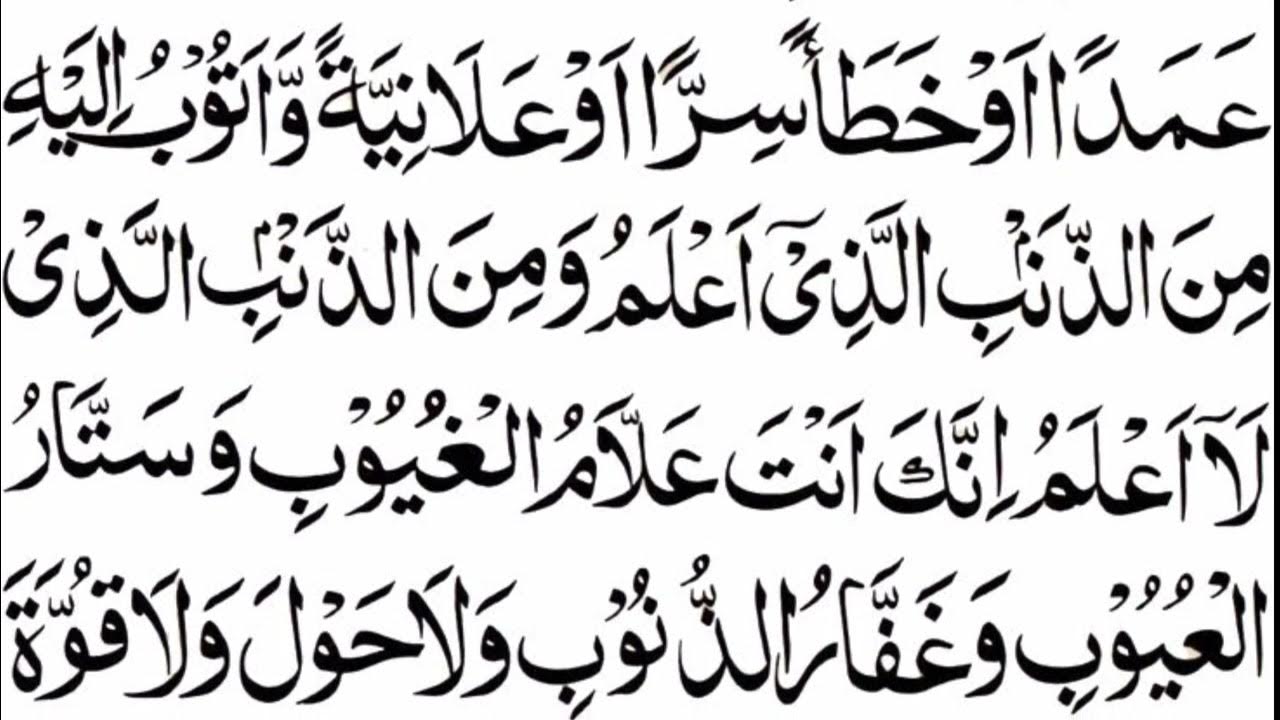 عَمَدًا اَوْ خَطَأً سِرًّا اَوْ عَلَانِيَةً وَّاَتُوْبُ اِلَيْهِ
مِنَ الذَّنْۢبِ الَّذِىْٓ اَعْلَمُ وَمِنَ الذَّنْۢبِ الَّذِىْ
لَآ اَعْلَمُ اِنَّكَ اَنْتَ عَلَّامُ الْغُيُوْبِ وَسَتَّارُ
الْعُيُوْبِ وَغَفَّارُ الذُّنُوْبِ وَلَا حَوْلَ وَلَا قُوَّةَ